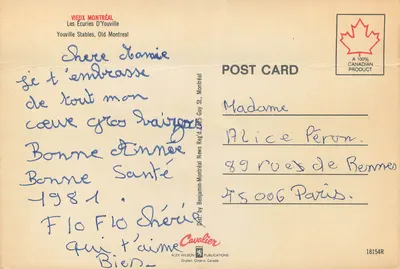 VIEUX MONTRÉAL
Les Écuries D'Youville
Youville Stables, Old Montreal
chere Mamie
je t'embrasse
de tout mon
cœur gros
Bonne Année
Bonne Santé
1981.
FIO FIO chérie
qui t'aime
Bien.
POST CARD
A 100%
CANADIAN
PRODUCT
Madame
Alice Péron.
89 rues de Rennes
75006 Paris.
by Benjamin-Montréal News Reg'd. Guy St., Montréal
Cavalier
ALEX WILSON PUBLICATIONS
Dryden, Ontario, Canada
18154R